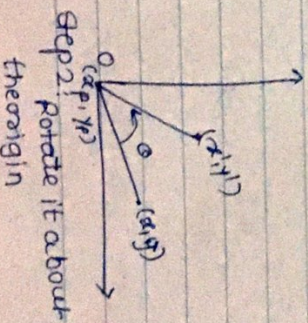 (x',y')
θ
(x,y)
O
(xp, yp)
Step2: Rotate it about
the origin